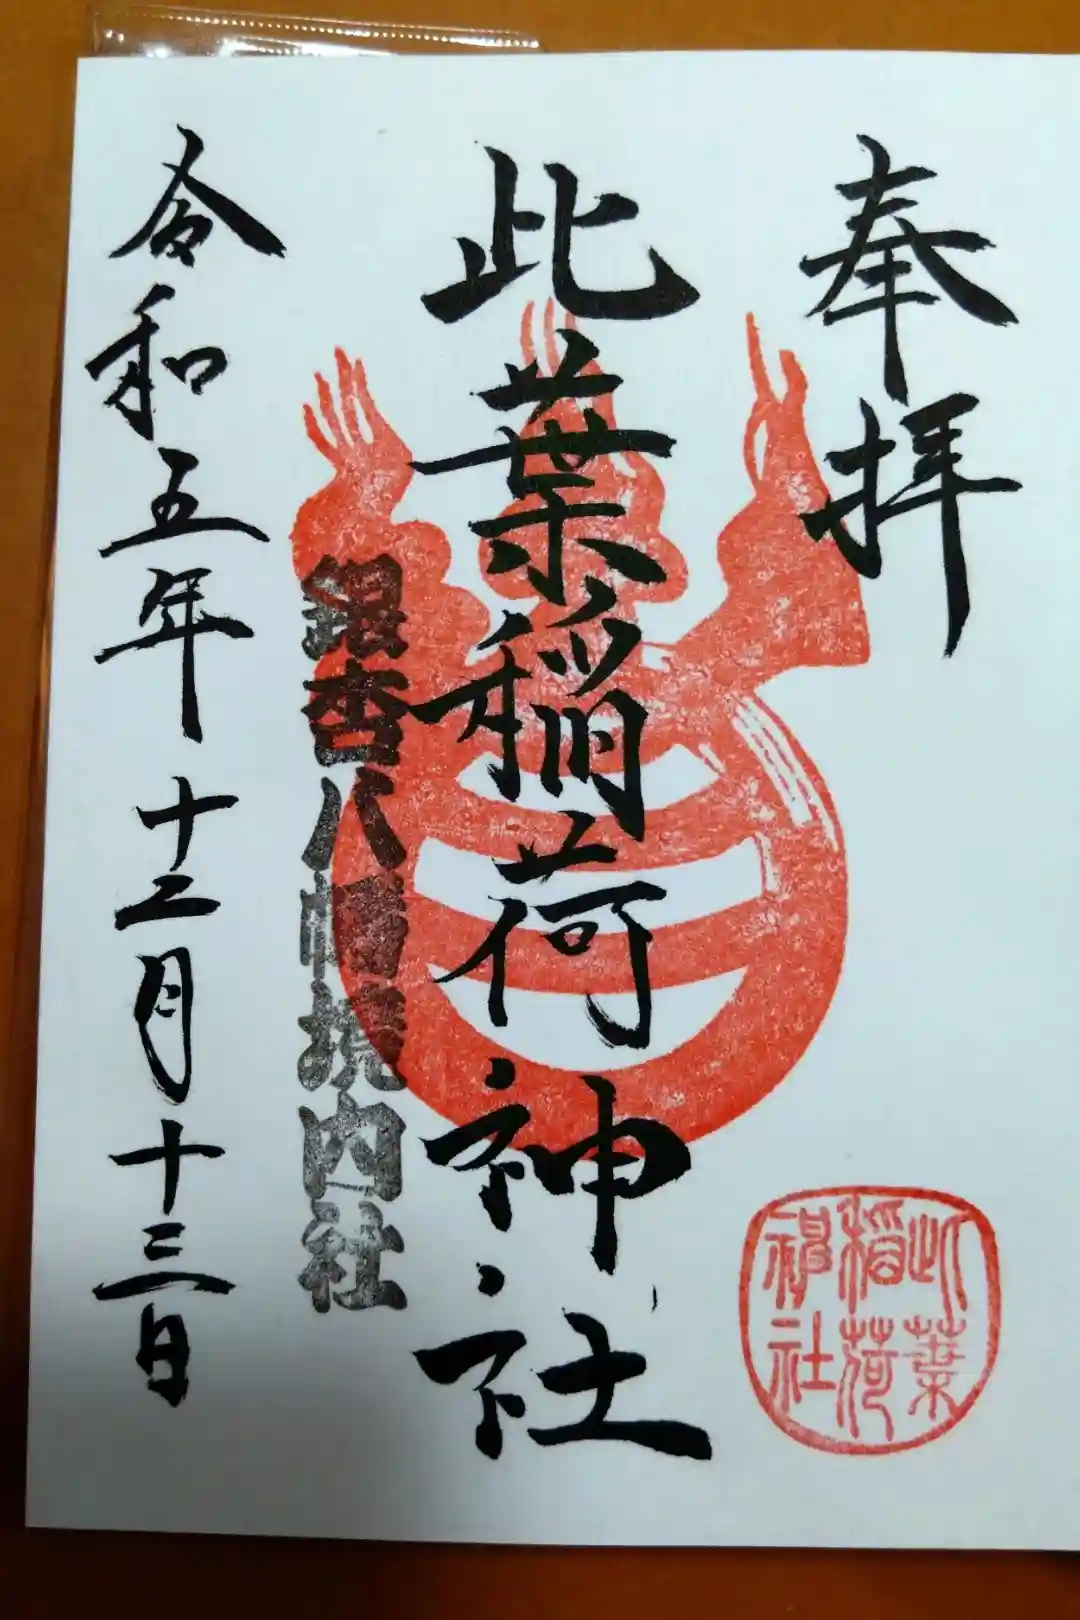 奉拝
此葉稲荷神社
銀杏八幡境内社
令和五年十二月十三日
此葉
稲荷
神社